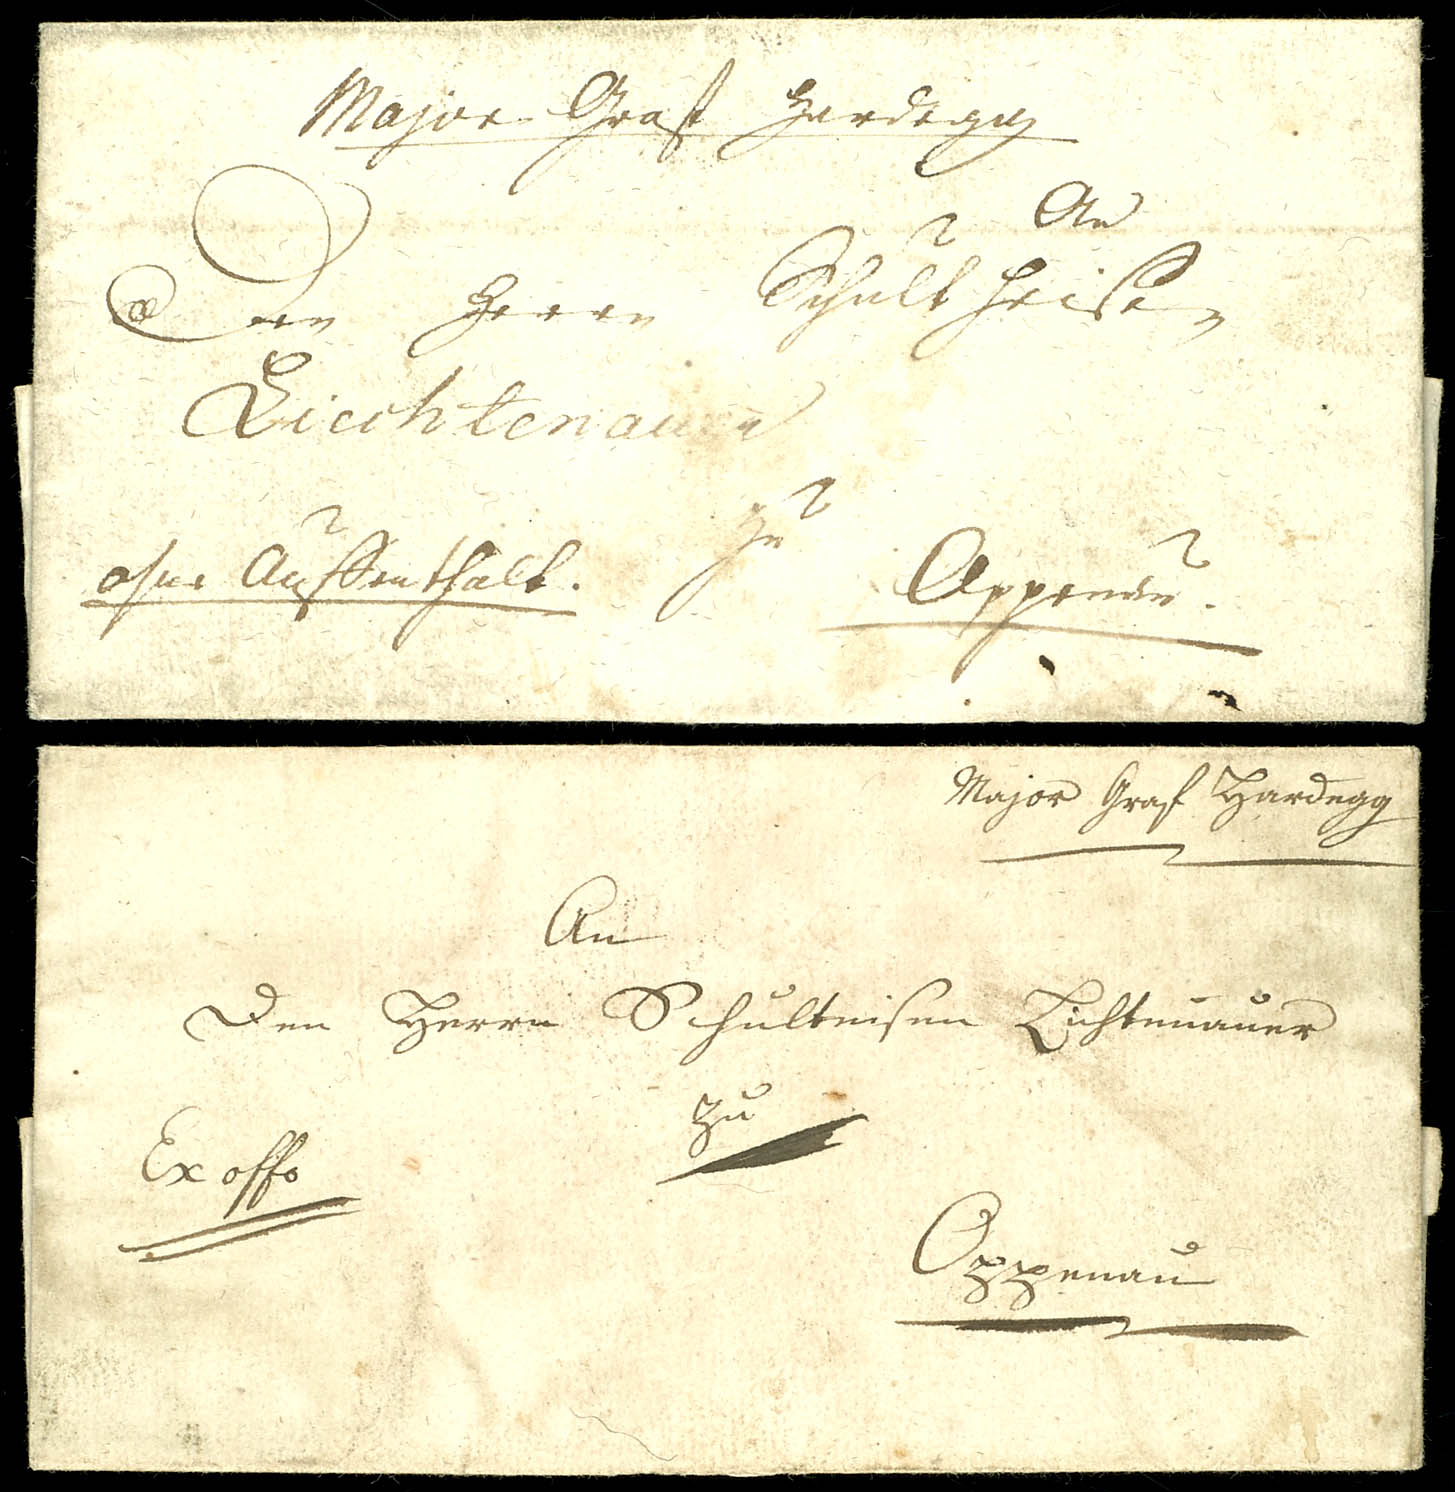 Major Graf Hardegg
An
Den Herrn Schultheisen
Liechtenauer
zu
ohne Auffenthalt. Oppenau.
Major Graf Hardegg
An
Den Herrn Schulteisen Lichtenauer
zu
Ex offo
Oppenau